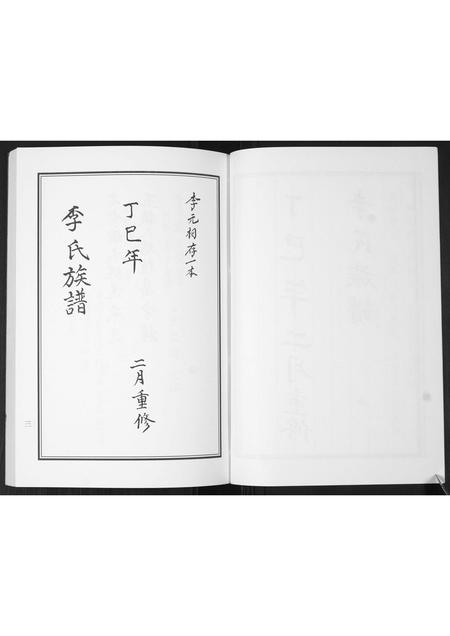 李元相存一本
丁巳年
二月重修
李氏族譜
三